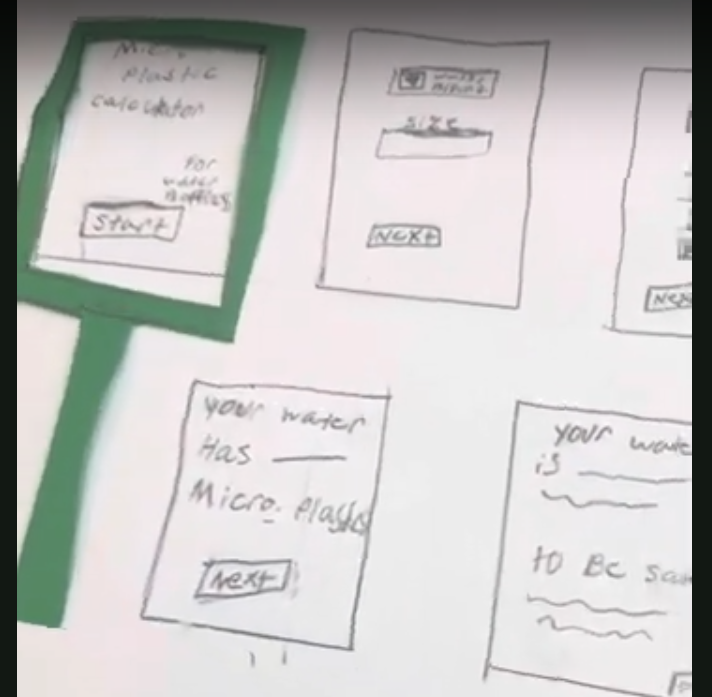 Micro
Plastic
calculator
For
water
Bottles
Start
water
SIZE
Next
Next
Your water
Has
Micro. Plastics
Next
Your wate
is
to Be